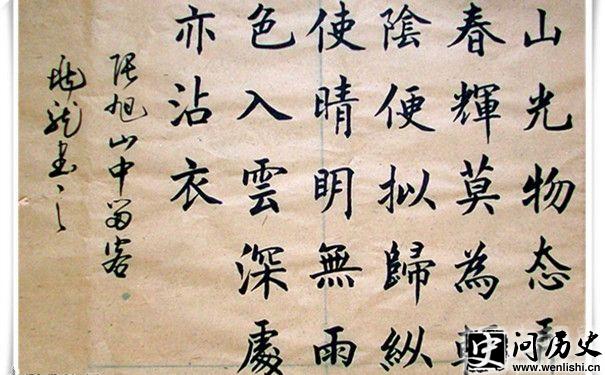 山光物态弄
春輝莫為輕
陰便拟歸纵
使晴明無雨
色入雲深處
亦沾衣
张旭山中留客
龍书之
问历史
www.wenlishi.cn